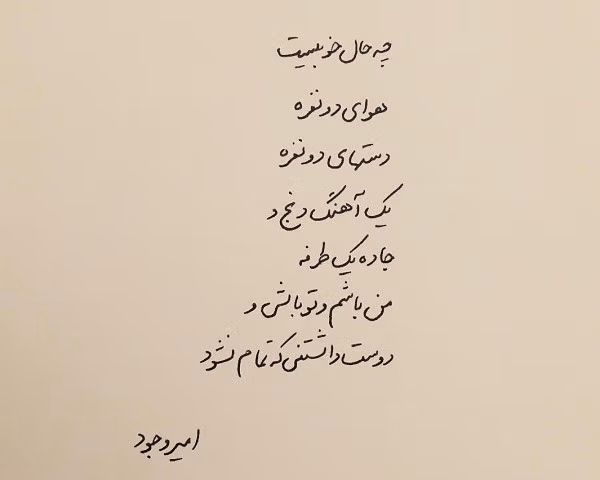 چه حال خوبیست
هوای دونفره
دستهای دونفره
یک آهنگ دنج و
جاده یک طرفه
من باشم و تو باشی و
دوست داشتنی که تمام نشود
امیر وجود